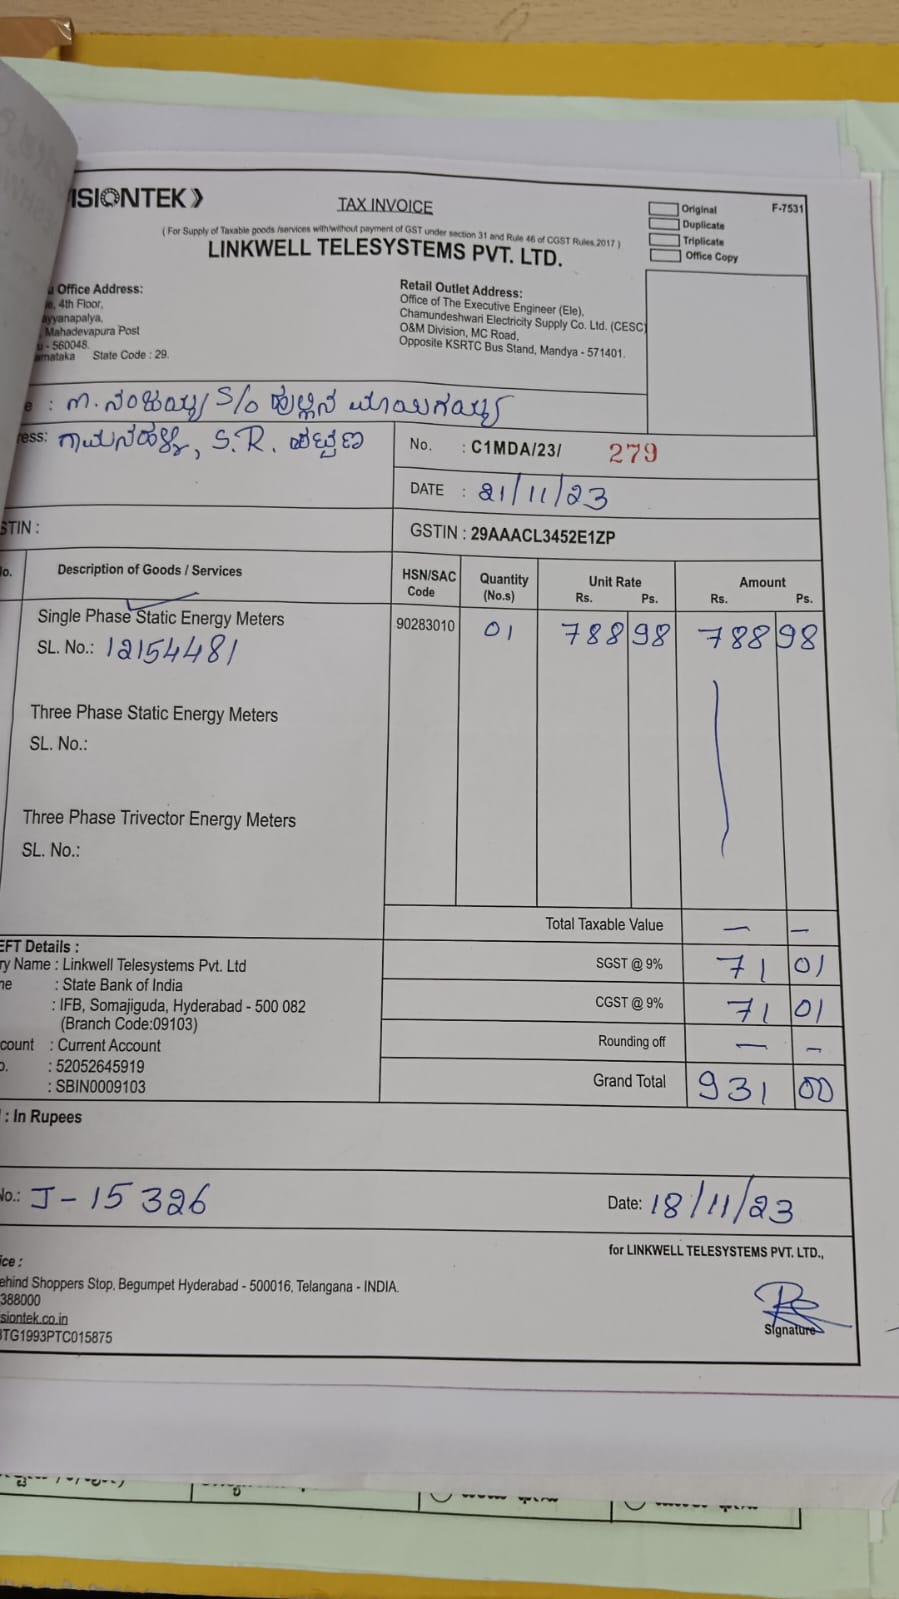 ISIONTEK
TAX INVOICE
Original
Duplicate
Triplicate
Office Copy
F-7531
( For Supply of Taxable goods /services with/without payment of GST under section 31 and Rule 46 of CGST Rules,2017 )
LINKWELL TELESYSTEMS PVT. LTD.
Office Address:
4th Floor,
ayyanapalya,
Mahadevapura Post
- 560048.
arnataka State Code : 29.
Retail Outlet Address:
Office of The Executive Engineer (Ele),
Chamundeshwari Electricity Supply Co. Ltd. (CESC)
O&M Division, MC Road,
Opposite KSRTC Bus Stand, Mandya - 571401.
e : S/o
ress: S.R.
No. : C1MDA/23/ 279
DATE : 21/11/23
STIN :
GSTIN : 29AAACL3452E1ZP
No. Description of Goods / Services HSN/SAC Code Quantity (No.s) Unit Rate Rs. Ps. Amount Rs. Ps.
Single Phase Static Energy Meters 90283010 01 788 98 788 98
SL. No.: 12154481
Three Phase Static Energy Meters
SL. No.:
Three Phase Trivector Energy Meters
SL. No.:
Total Taxable Value — —
EFT Details :
ry Name : Linkwell Telesystems Pvt. Ltd
me : State Bank of India
: IFB, Somajiguda, Hyderabad - 500 082
(Branch Code:09103)
count : Current Account
o. : 52052645919
: SBIN0009103
SGST @ 9% 71 01
CGST @ 9% 71 01
Rounding off — -
Grand Total 931 00
: In Rupees
No.: J-15326
Date: 18/11/23
for LINKWELL TELESYSTEMS PVT. LTD.,
ice :
ehind Shoppers Stop, Begumpet Hyderabad - 500016, Telangana - INDIA.
388000
siontek.co.in
TG1993PTC015875
Signature